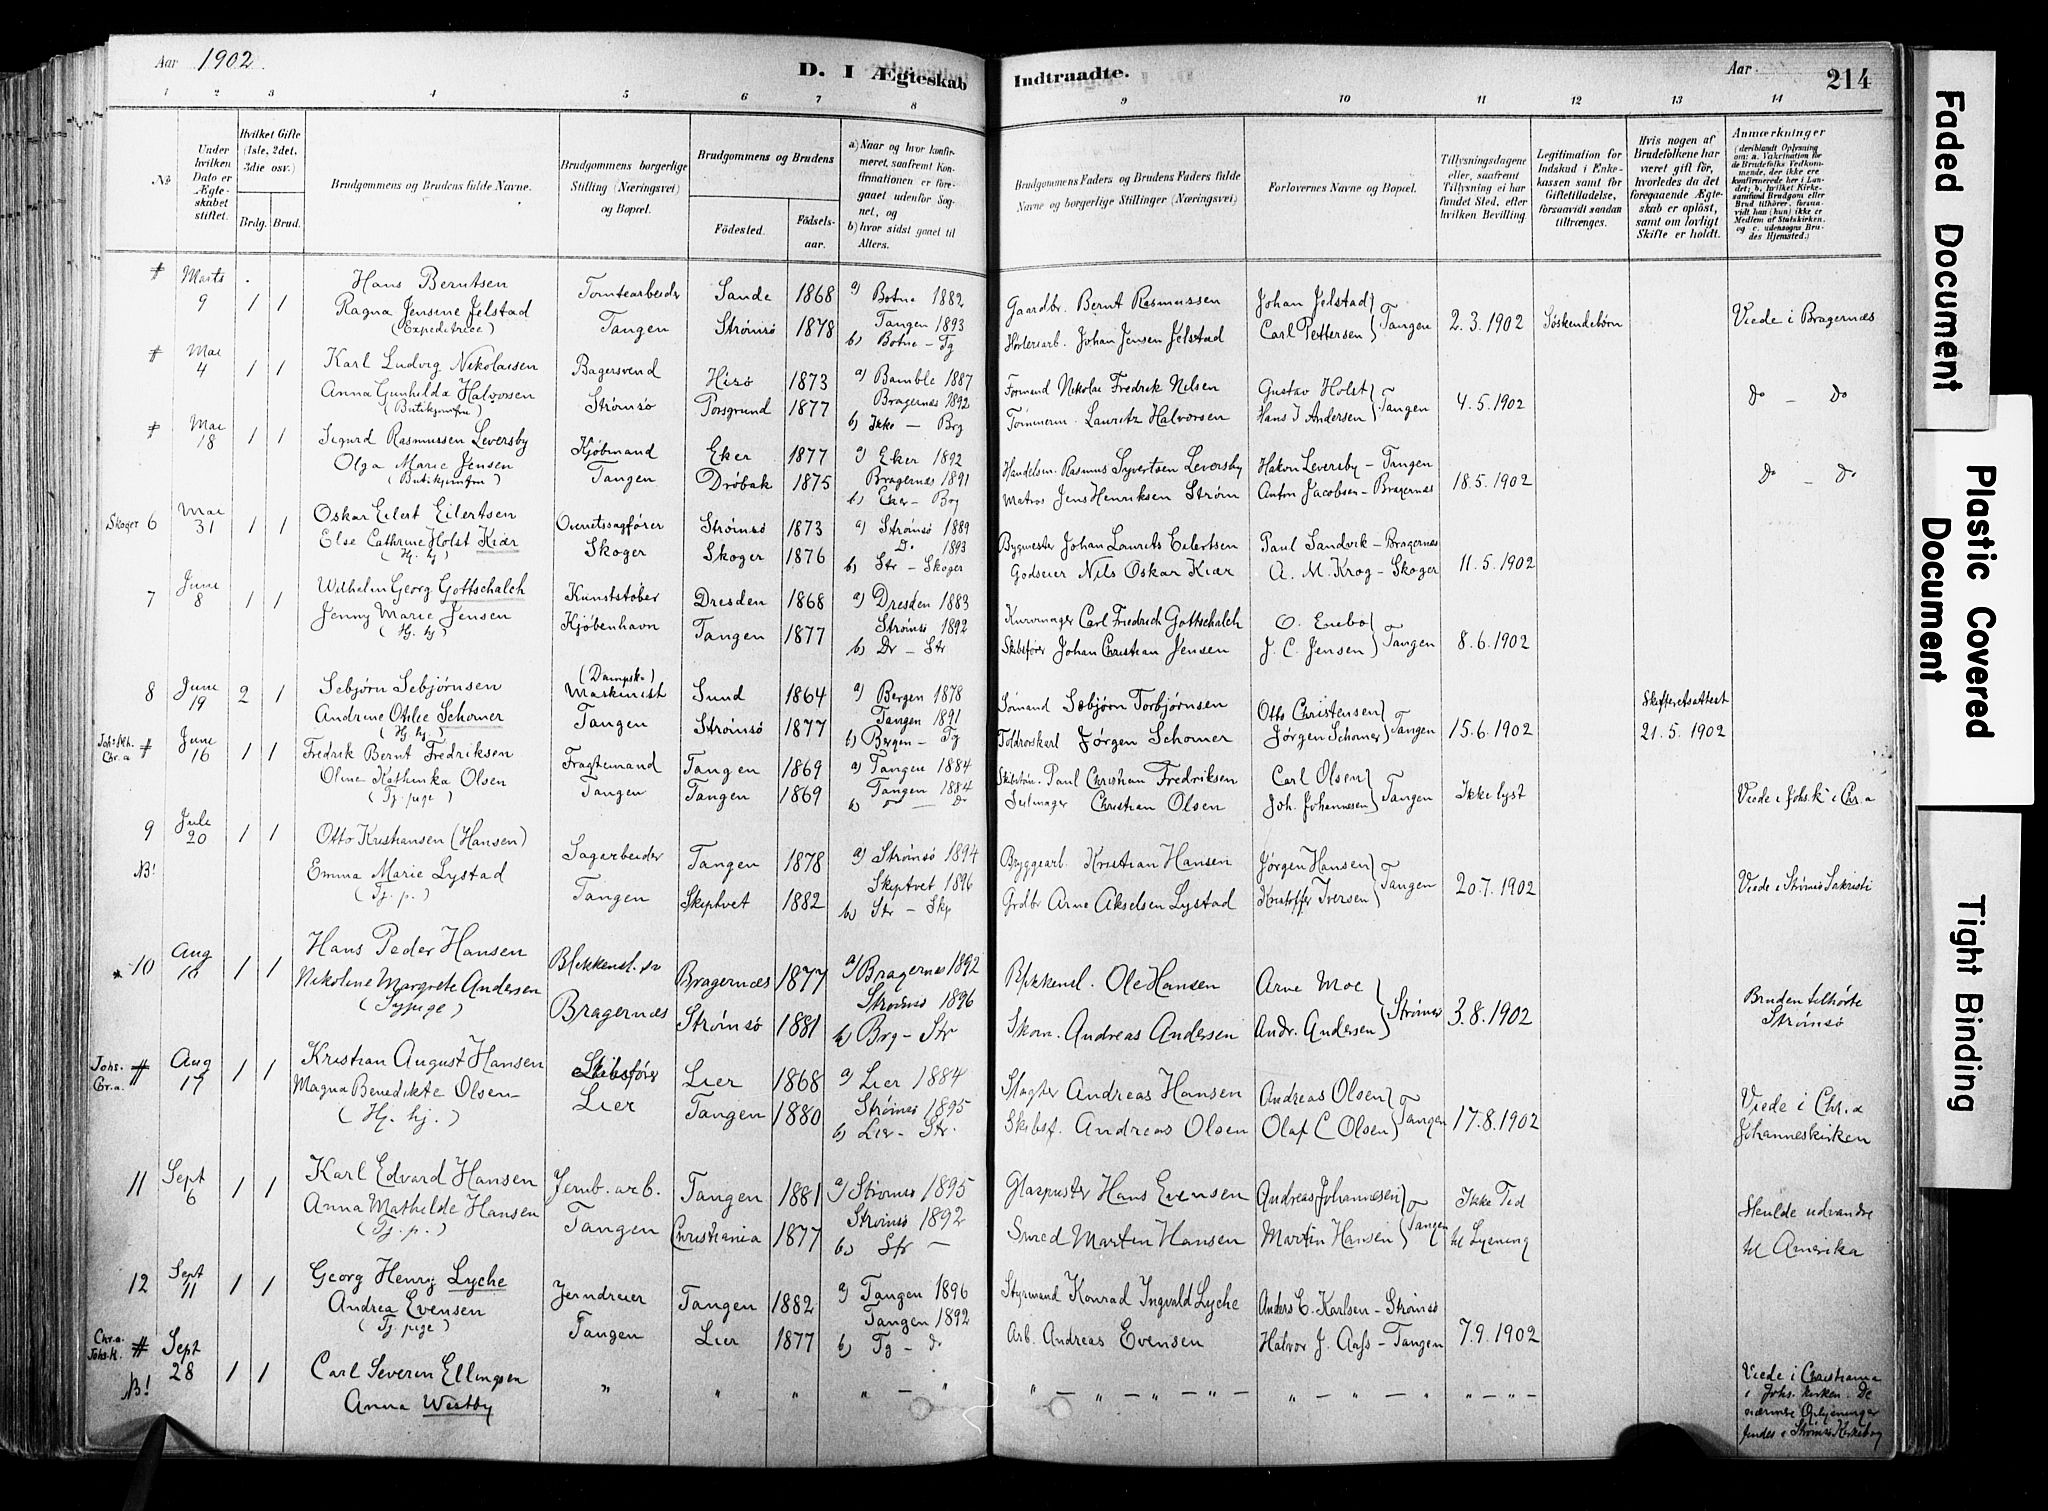 Aar 1902.
D. I Ægteskab Indtraadte.
Aar 214
1 2 3 4 5 6 7 8 9 10 11 12 13 14
No
Under hvilken Dato er Ægteskabet stiftet.
Hvilket Gifte (1ste, 2det, 3die osv.)
Brdg. Brud.
Brudgommens og Brudens fulde Navne.
Brudgommens borgerlige Stilling (Næringsvei) og Bopæl.
Brudgommens og Brudens
Fødested. Fødselsaar.
a) Naar og hvor konfirmeret, saafremt Konfirmationen er foregaaet udenfor Sognet, og
b) hvor sidst gaaet til Alters.
Brudgommens Faders og Brudens Faders fulde Navne og borgerlige Stillinger (Næringsvei)
Forlovernes Navne og Bopæl.
Tillysningsdagene eller, saafremt Tillysning ei har fundet Sted, efter hvilken Bevilling.
Legitimation for Indskud i Enkekassen samt for Giftetilladelse, forsaavidt saadan tiltrænges.
Hvis nogen af Brudefolkene har været gift før, hvorledes da det foregaaende Ægteskab er opløst, samt om lovligt Skifte er holdt.
Anmærkninger
(deriblandt Oplysning om: a. Vakcination for de Brudefolks Vedkommende, der ikke ere konfirmerede her i Landet; b. hvilket Kirkesamfund Brudgom eller Brud tilhører, forsaavidt han (hun) ikke er Medlem af Statskirken, og c. udensogns Brudes Hjemsted.)
# Marts 9 1 1 Hans Berntsen Tomtearbeider Sande 1868 a) Botne 1882 Gaardbr. Bernt Rasmussen Johan Jelstad
Ragna Jensine Jelstad (Expeditrice) Tangen Strømsø 1878 Tangen 1893 b) Botne - Tg Johan Jensen Jelstad Carl Pettersen } Tangen 2.3.1902 Søskendebørn Viede i Bragernæs
# Mai 4 1 1 Karl Ludvig Nikolaisen Bagersvend Hisø 1873 a) Bamble 1887 Formand Nikolai Fredrik Nilsen Gustav Holst
Anna Gunhilda Halvorsen (Butikjomfru) Strømsø Porsgrund 1877 Bragernæs 1892 b) Ikke - Brg Tømmerm. Lauritz Halvorsen Hans J Andersen } Tangen 4.5.1902 do - do
# Mai 18 1 1 Sigurd Rasmussen Leversby Kjøbmand Eker 1877 a) Eker 1892 Handelsm. Rasmus Syvertsen Leversby Hakon Leversby - Tangen
Olga Marie Jensen (Butikjomfru) Tangen Drøbak 1875 Bragernæs 1891 b) Eker - Brg Matros Jens Henriksen Strøm Anton Jacobsen - Bragernæs 18.5.1902 do - do
Skoger 6 Mai 31 1 1 Oskar Eilert Eilertsen Overretssagfører Strømsø 1873 a) Strømsø 1889 Bygmester Johan Laurits Eilertsen Paul Sandvik - Bragernæs
Else Cathrine Holst Kiær (Hj. hj) Skoger Skoger 1876 Do. 1893 b) Str - Skoger Godseier Nils Oskar Kiær A. M. Krog - Skoger 11.5.1902
7 Juni 8 1 1 Wilhelm Georg Gottschalch Kunststøber Dresden 1868 a) Dresden 1883 Kurvmager Carl Fredrich Gottschalch O. Enebo
Jenny Marie Jensen (Hj. hj) Kjøbenhavn Tangen 1877 Strømsø 1892 b) Dr - Str Skibsfører Johan Christian Jensen J. C. Jensen } Tangen 8.6.1902
8 Juni 19 2 1 Sebjørn Sebjørnsen (Dampsk.) Maskinist Sund 1864 a) Bergen 1878 Sømand Sebjørn Torbjørnsen Otto Christensen Skifteretsattest
Andrine Otilie Schomer (Hj. hj.) Tangen Strømsø 1877 Tangen 1891 b) Bergen - Tg Toldrorskarl Jørgen Schomer Jørgen Schomer } Tangen 15.6.1902 21.5.1902
Johs. kh. Chr.a # Juni 16 1 1 Fredrik Bernt Fredriksen Fragtemand Tangen 1869 a) Tangen 1884 Paul Christian Fredriksen Carl Olsen
Oline Kathinka Olsen (Tj. pige) Tangen Tangen 1869 Tangen 1884 b) " - do Seilmager Christian Olsen Joh. Johannesen } Tangen Ikke lyst Viede i Johs. k. i Chr.a
9 NB! Juli 20 1 1 Otto Kristiansen (Hansen) Sagarbeider Tangen 1878 a) Strømsø 1894 Bryggearb. Kristian Hansen Jørgen Hansen
Emma Marie Lystad (Tj. p.) Tangen Skiptvet 1882 Skiptvet 1896 b) Str - Skip Grdbr Arne Akselsen Lystad Kristoffer Iversen } Tangen 20.7.1902 Viede i Strømsø Sakristi
10 Aug 10 1 1 Hans Peder Hansen Blikkensl. sv Bragernæs 1877 a) Bragernæs 1892 Blikkensl. Ole Hansen Arne Moe
Nikoline Margrete Andersen (Sypige) Bragernæs Strømsø 1881 Strømsø 1896 b) Brg - Str Skom. Andreas Andersen Andr. Andersen } Strømsø 3.8.1902 Bruden tilhørte Strømsø
Johs. Chr.a. # Aug 17 1 1 Kristian August Hansen Skibsfører Lier 1868 a) Lier 1884 Slagter Andreas Hansen Andreas Olsen
Magna Benedikte Olsen (Hj. hj.) Lier Tangen 1880 Strømsø 1895 b) Lier - Str. Skibsf. Andreas Olsen Olaf C Olsen } Tangen 17.8.1902 Viede i Chr.a Johanneskirken
11 Sept 6 1 1 Karl Edvard Hansen Jernb. arb. Tangen 1881 a) Strømsø 1895 Glaspuster Hans Evensen Andreas Johannesen Ikke Tid
Anna Mathilde Hansen (Tj. p.) Tangen Christiania 1877 Strømsø 1892 b) Str - Smed Martin Hansen Martin Hansen } Tangen til Lysning Skulde udvandre til Amerika
12 Sept 11 1 1 Georg Henry Lyche Jerndreier Tangen 1882 a) Tangen 1896 Styrmand Konrad Ingvald Lyche Anders E. Karlsen - Strømsø
Andrea Evensen (Tj. pige) Tangen Lier 1877 Tangen 1892 b) Tg - do Arb. Andreas Evensen Halvor J. Aass - Tangen 7.9.1902
Chr.a. Johs. K. # NB! Sept 28 1 1 Carl Severin Ellingsen " " " " - " " - " - " - " - " - " - " - Viede i Christiania i Johs. kirken. De nærmere Oplysninger findes i Strømsø Kirkebog
Anna Westby
Faded Document
Plastic Covered Document
Tight Binding